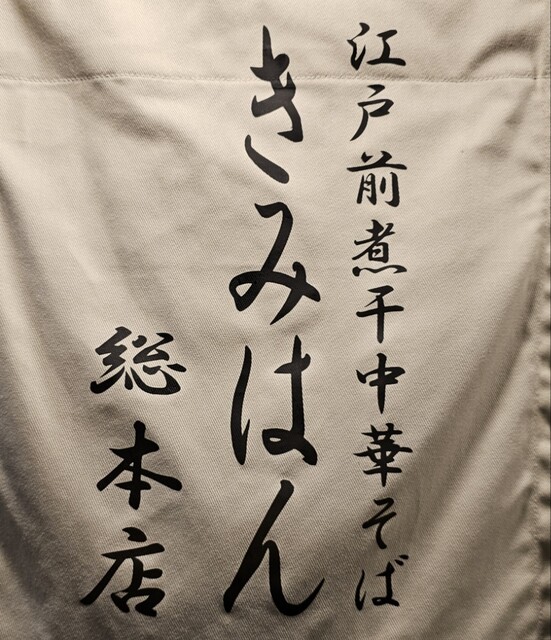 江戸前煮干中華そば
きみはん
総本店